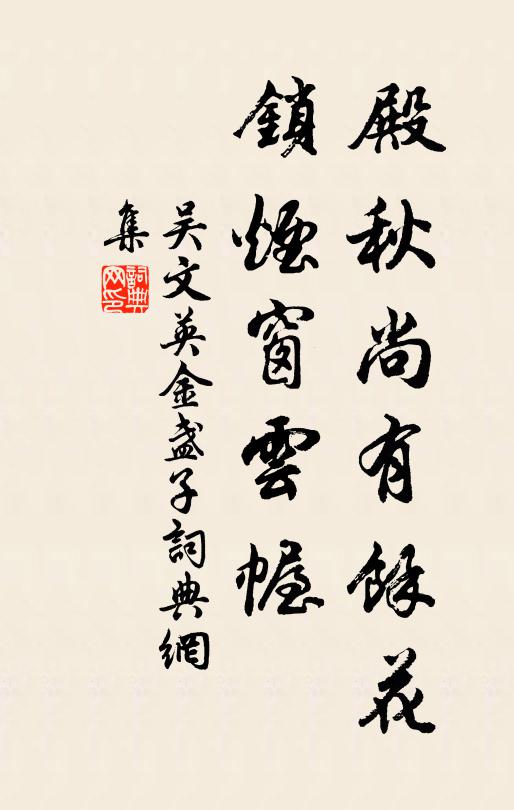 殿秋尚有餘花
鎖煙窗雲幄
吴文英金盏子詞典網
集
詞典
网印